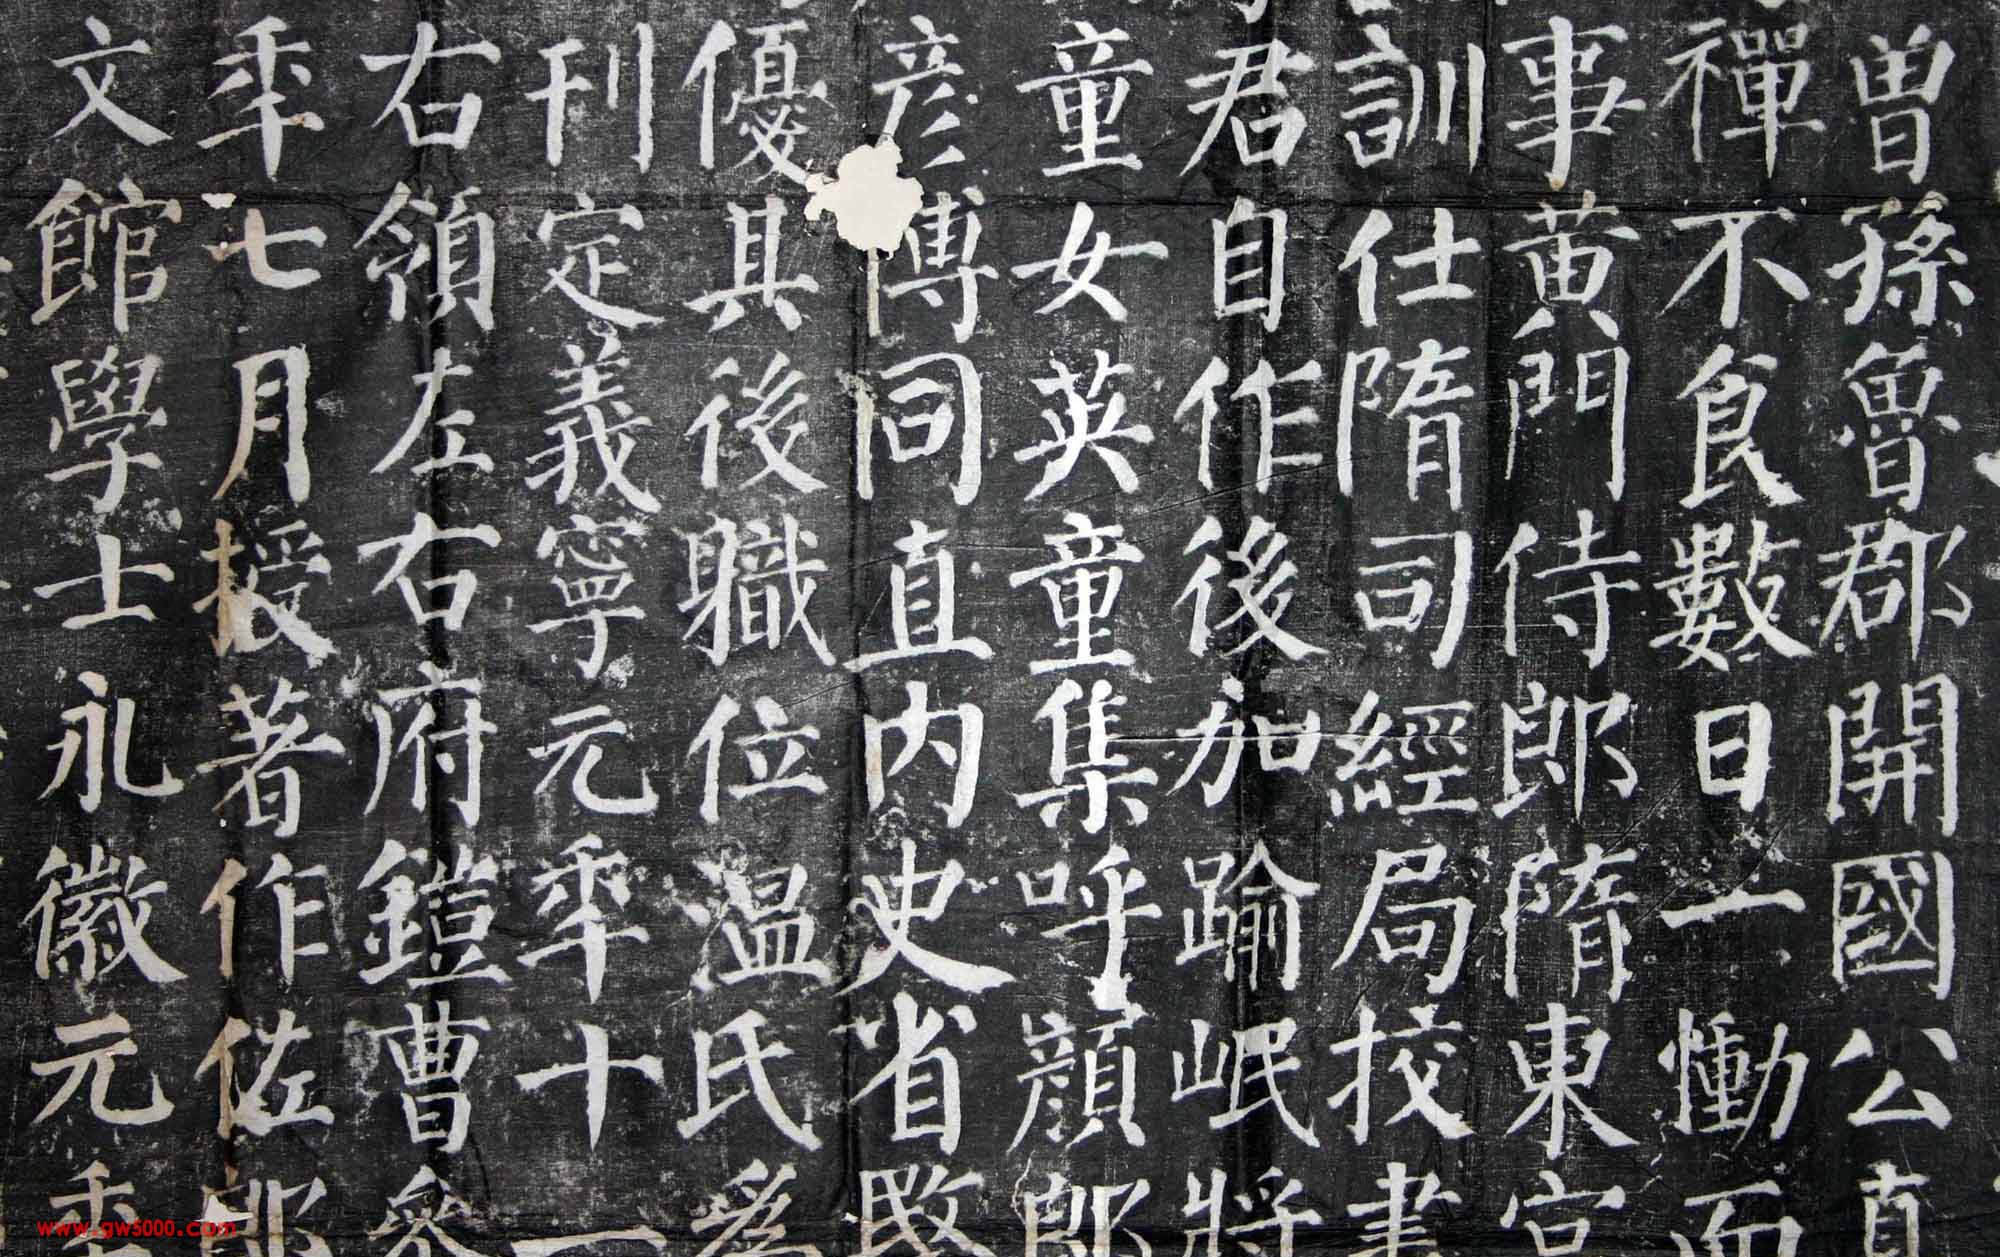 曾孫魯郡開國公真
禪不食數日一慟而
事黃門侍郎隋東宮
訓仕隋司經局挍書
君自作後加踰岷將
童女英童集呼顏郎
彥博同直内史省愍
優其後職位温氏為
刊定義寧元秊十一
右領左右府鎧曹參
秊七月授著作佐郎
文館學士永徽元秊
www.gw5000.com